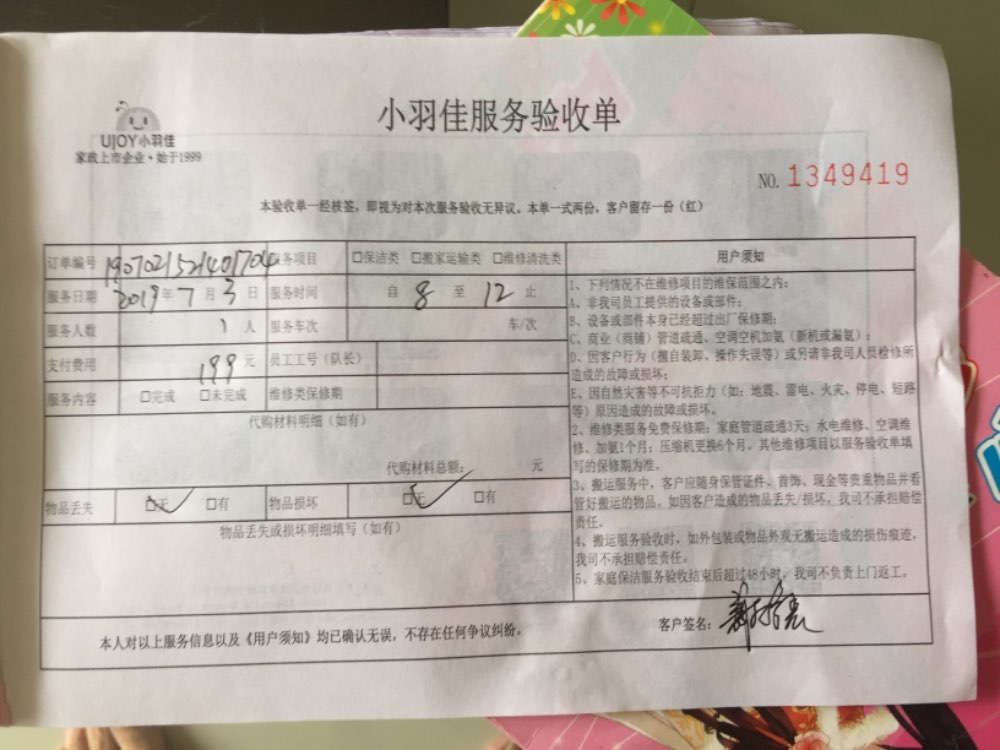 小羽佳服务验收单
UJOY小羽佳
家政上市企业·始于1999
NO. 1349419
本验收单一经核签，即视为对本次服务验收无异议。本单一式两份，客户留存一份（红）
订单编号 1907021521401704 务项目 □保洁类 □搬家运输类 □维修清洗类
服务日期 2019年7月3日 服务时间 自 8 至 12 止
服务人数 1 人 服务车次 车/次
支付费用 199 元 员工工号（队长）
服务内容 □完成 □未完成 维修类保修期
代购材料明细（如有）
代购材料总额： 元
物品丢失 □无 □有 物品损坏 □无 □有
物品丢失或损坏明细填写（如有）
用户须知
1、下列情况不在维修项目的维保范围之内：
A、非我司员工提供的设备或部件；
B、设备或部件本身已经超过出厂保修期；
C、商业（商铺）管道疏通、空调空机加氨（新机或漏氨）；
D、因客户行为（擅自装卸、操作失误等）或另请非我司人员检修所
造成的故障或损坏；
E、因自然灾害等不可抗拒力（如：地震、雷电、火灾、停电、短路
等）原因造成的故障或损坏。
2、维修类服务免费保修期：家庭管道疏通3天；水电维修、空调维
修、加氨1个月；压缩机更换6个月，其他维修项目以服务验收单填
写的保修期为准。
3、搬运服务中，客户应随身保管证件、首饰、现金等贵重物品并看
管好搬运的物品，如因客户造成的物品丢失/损坏，我司不承担赔偿
责任。
4、搬运服务验收时，如外包装或物品外观无搬运造成的损伤痕迹，
我司不承担赔偿责任。
5、家庭保洁服务验收结束后超过48小时，我司不负责上门返工。
本人对以上服务信息以及《用户须知》均已确认无误，不存在任何争议纠纷。
客户签名：